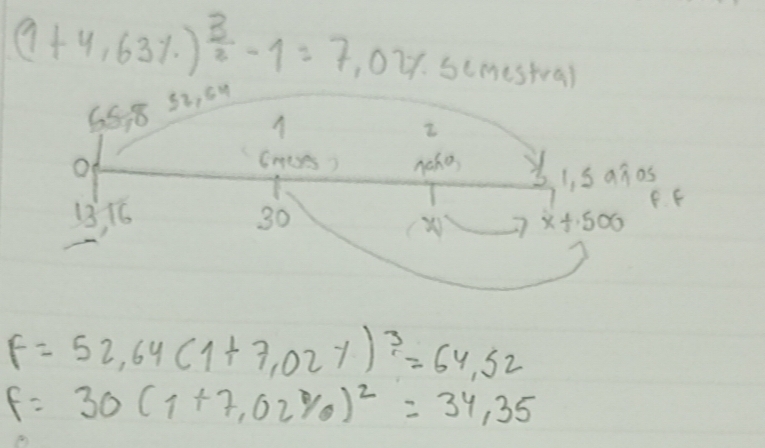 (1+4,63%)^3/2 - 1 = 7,02% semestral
65,8 52,64
1 2
0 6 meses 1 año 3 1,5 años
f.f
13,16 30 x x+500
F = 52,64 (1+7,02%)^3 = 64,52
F = 30 (1+7,02%)^2 = 34,35